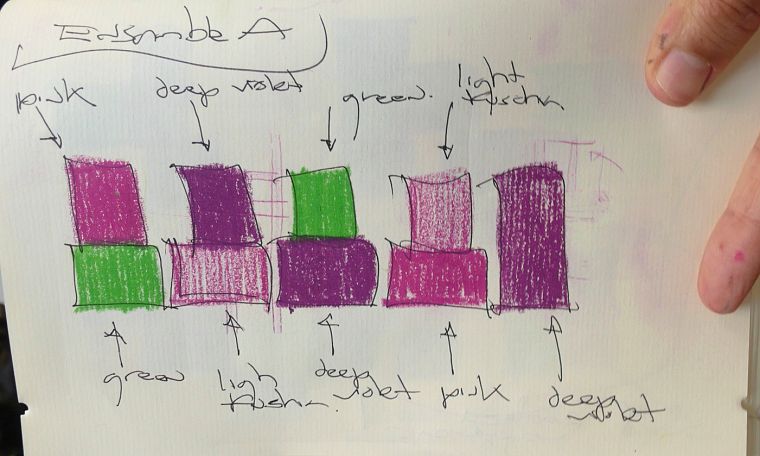 Ensemble A
pink
deep violet
green.
light
fuschia
green
light
fuschia.
deep
violet
pink
deep
violet